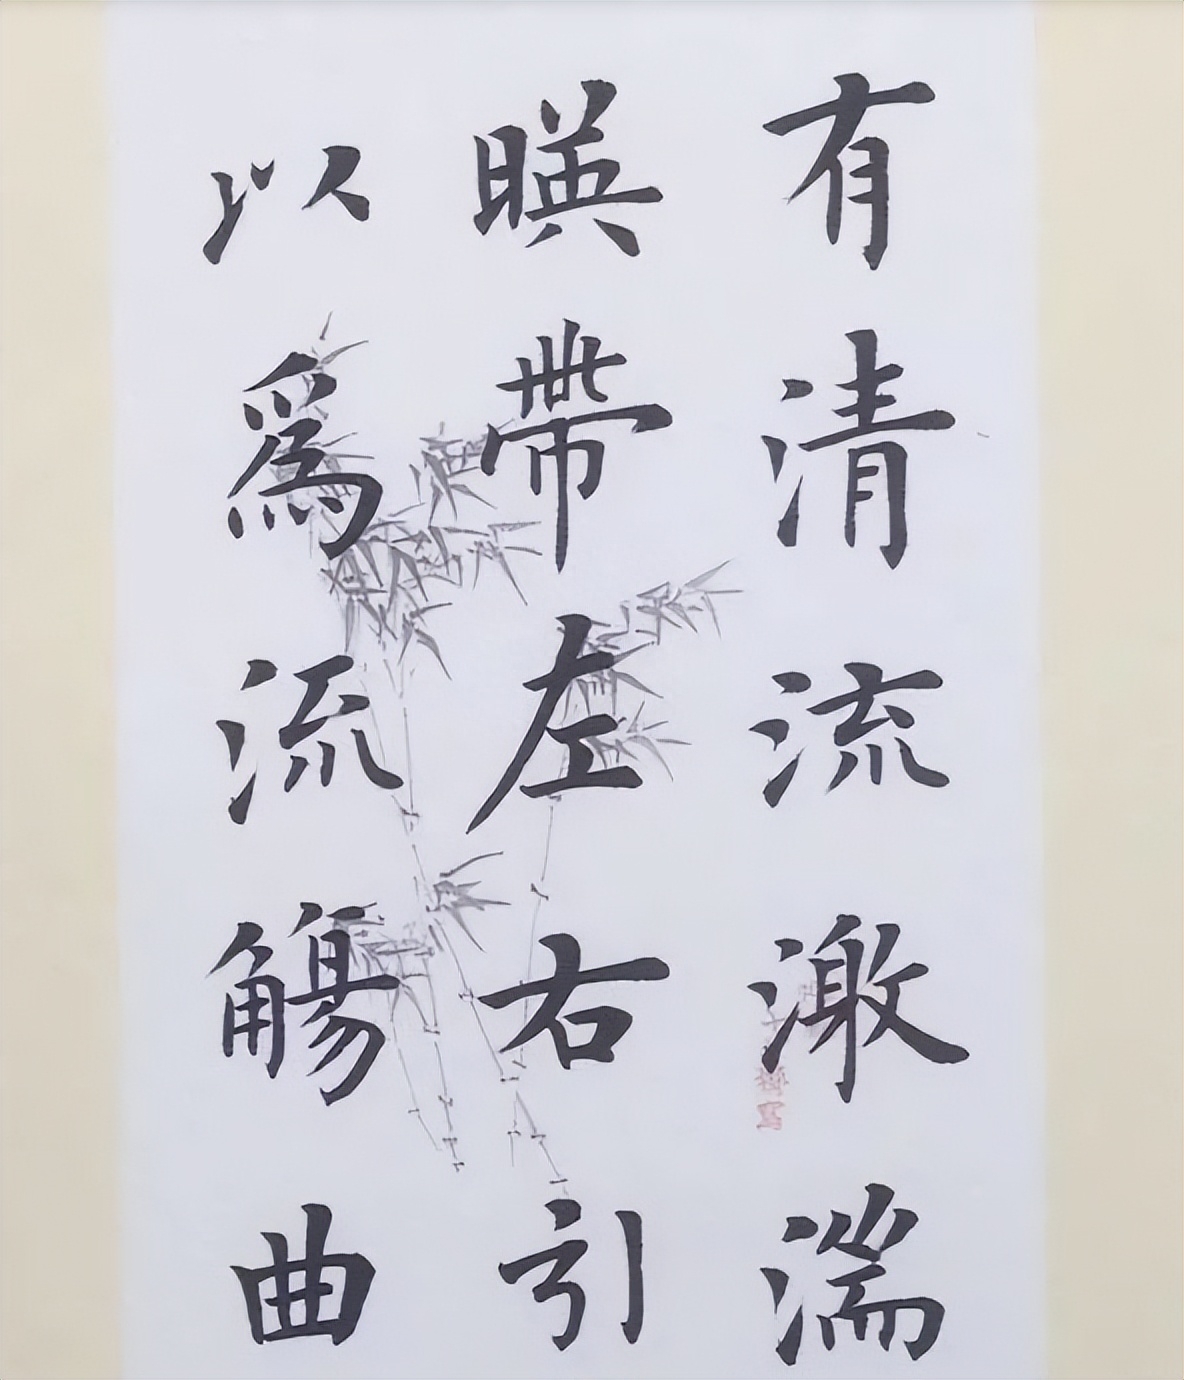 有清流激湍
暎帶左右引
以爲流觴曲